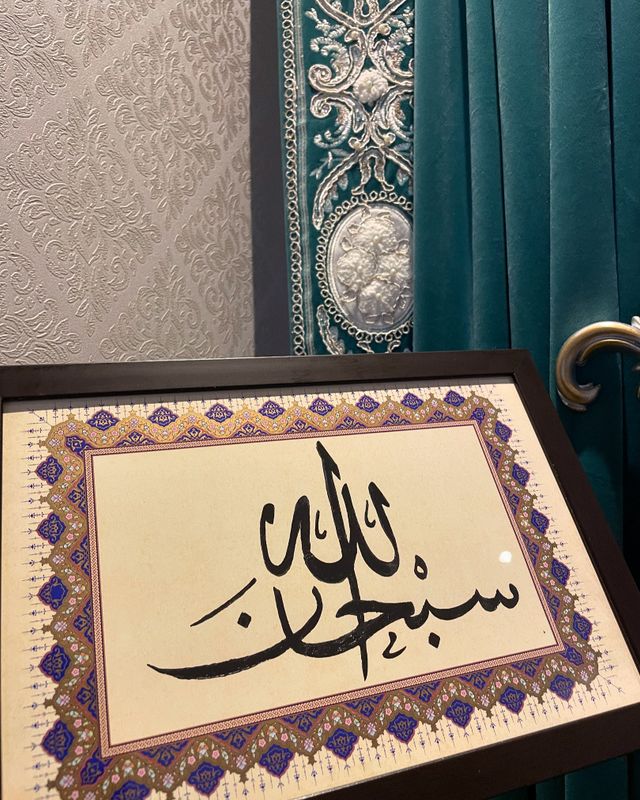 سبحان الله